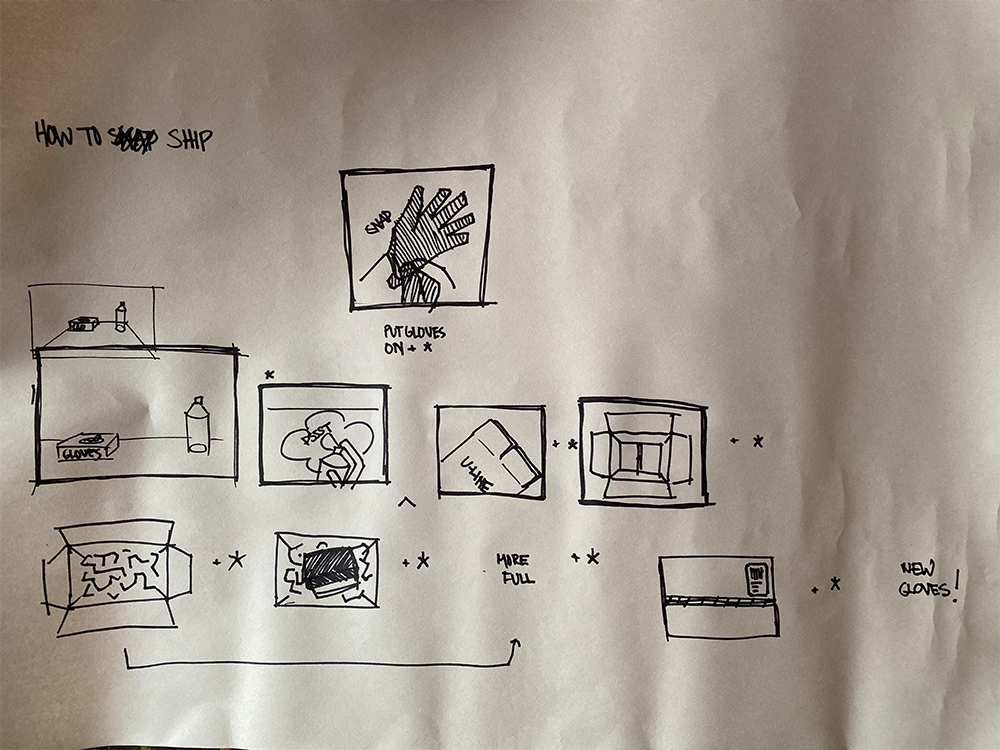 HOW TO SHIP
SNAP
PUT GLOVES
ON + *
*
GLOVES
PSST
U-LINE
+ *
+ *
^
+ *
+ *
MORE
FULL
+ *
+ *
NEW
GLOVES!